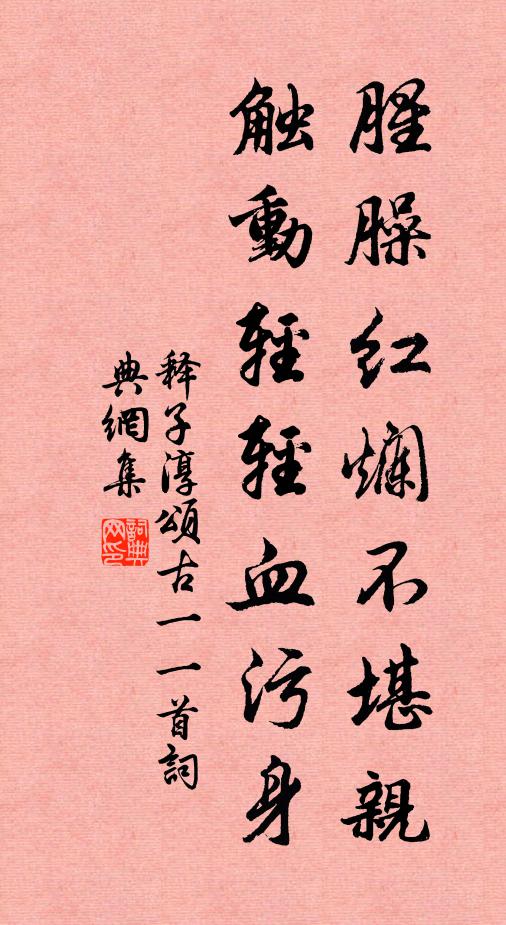 腥臊红爛不堪親
触動輕輕血污身
释子淳頌古一一首詞
典網集
詞典网印